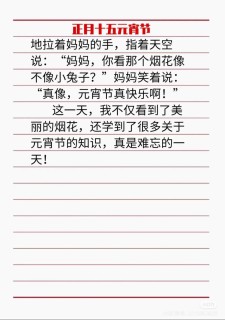 正月十五元宵节
地拉着妈妈的手，指着天空
说：“妈妈，你看那个烟花像
不像小兔子？”妈妈笑着说：
“真像，元宵节真快乐啊！”
这一天，我不仅看到了美
丽的烟花，还学到了很多关于
元宵节的知识，真是难忘的一
天！